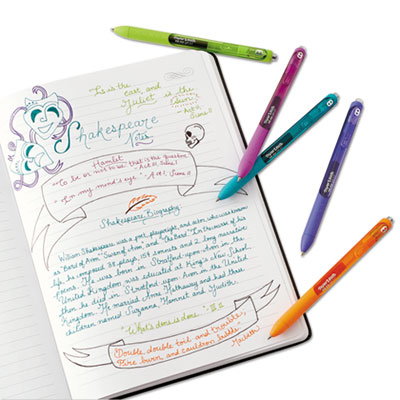 is the
east and
Juliet is the
sun.
Shakespeare
Notes
Hamlet
"To be or not to be that is the question"
"In my mind's eye."
Shakespeare Biography
William Shakespeare was a poet, playwright, and actor who was known
as "Bard of Avon," "Swan of Avon," and "The Bard." In the course of his
life, he composed 38 plays, 154 sonnets and 2 long narrative
poems. He was born in Stratford-upon-Avon in the
United Kingdom, was educated at King's New School
then he died in Stratford upon Avon in the United
Kingdom. He married Anne Hathaway and had three
children named Suzanna, Hamnet and Judith.
"What's done is done."
"Double, double toil and trouble,
Fire burn and cauldron bubble."